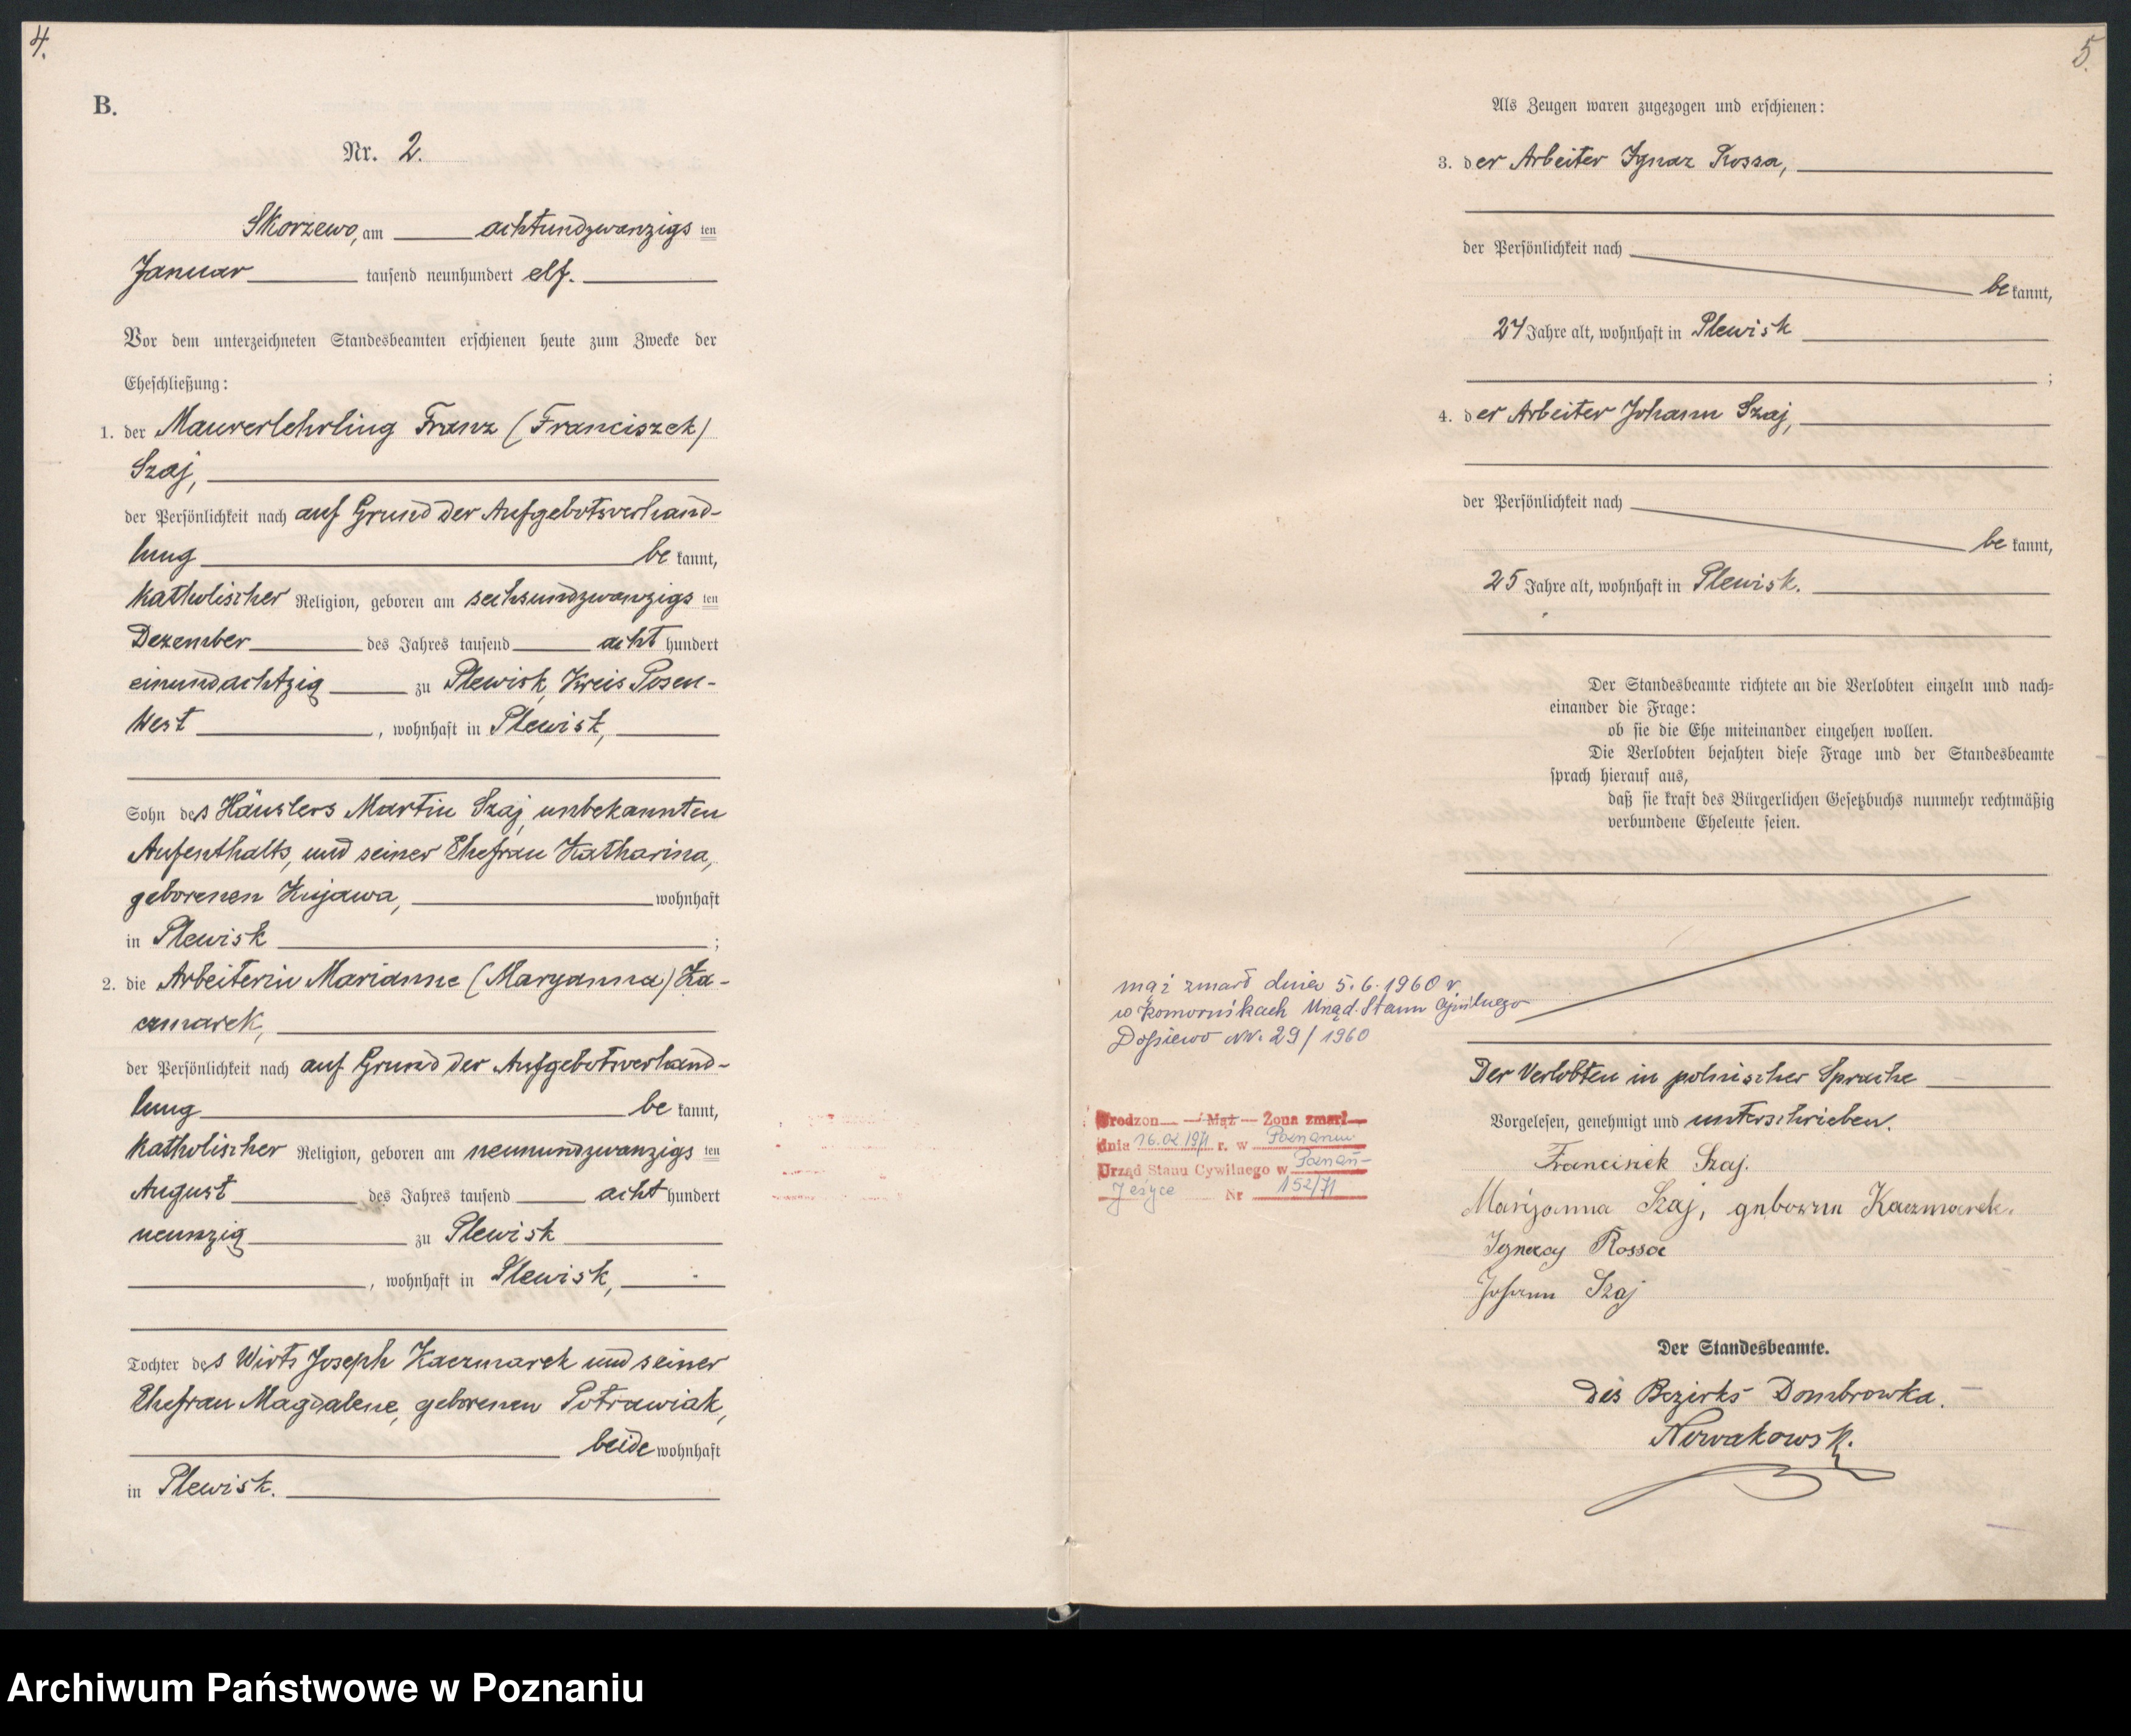 4.
B.
Nr. 2.
Skorzewo, am achtundzwanzigs ten
Januar tausend neunhundert elf.
Vor dem unterzeichneten Standesbeamten erschienen heute zum Zwecke der
Eheschließung:
1. der Maurerlehrling Franz (Franciszek)
Szaj,
der Persönlichkeit nach auf Grund der Aufgebotsverhand-
lung be kannt,
katholischer Religion, geboren am sechsundzwanzigs ten
Dezember des Jahres tausend acht hundert
einundachtzig zu Plewisk, Kreis Posen-
West, wohnhaft in Plewisk,
Sohn des Häuslers Martin Szaj, unbekannten
Aufenthalts, und seiner Ehefrau Katharina,
geborenen Kujawa, wohnhaft
in Plewisk ;
2. die Arbeiterin Marianne (Maryanna) Ka-
czmarek,
der Persönlichkeit nach auf Grund der Aufgebotsverhand-
lung be kannt,
katholischer Religion, geboren am neunundzwanzigs ten
August des Jahres tausend acht hundert
neunzig zu Plewisk
, wohnhaft in Plewisk,
Tochter des Wirts Joseph Kaczmarek und seiner
Ehefrau Magdalene, geborenen Potrawiak,
beide wohnhaft
in Plewisk.
5.
Als Zeugen waren zugezogen und erschienen:
3. der Arbeiter Ignaz Rossa,
der Persönlichkeit nach
be kannt,
27 Jahre alt, wohnhaft in Plewisk
;
4. der Arbeiter Johann Szaj,
der Persönlichkeit nach
be kannt,
25 Jahre alt, wohnhaft in Plewisk.
Der Standesbeamte richtete an die Verlobten einzeln und nach-
einander die Frage:
ob sie die Ehe miteinander eingehen wollen.
Die Verlobten bejahten diese Frage und der Standesbeamte
sprach hierauf aus,
daß sie kraft des Bürgerlichen Gesetzbuchs nunmehr rechtmäßig
verbundene Eheleute seien.
mąż zmarł dnia 5.6.1960 r
w Komornikach Urząd Stanu Cywilnego
Dopiewo Nr. 29/1960
Der Verlobten in polnischer Sprache
Vorgelesen, genehmigt und unterschrieben.
Urodzon — Mąż — Żona zmarł
dnia 16.02.1971 r. w Poznaniu
Urząd Stanu Cywilnego w Poznań-
Jeżyce Nr 152/71
Franciszek Szaj.
Marijanna Szaj, geborene Kaczmarek.
Ignacy Rossa
Johann Szaj
Der Standesbeamte.
Des Bezirks Dombrowka.
Nowakowski.
Archiwum Państwowe w Poznaniu